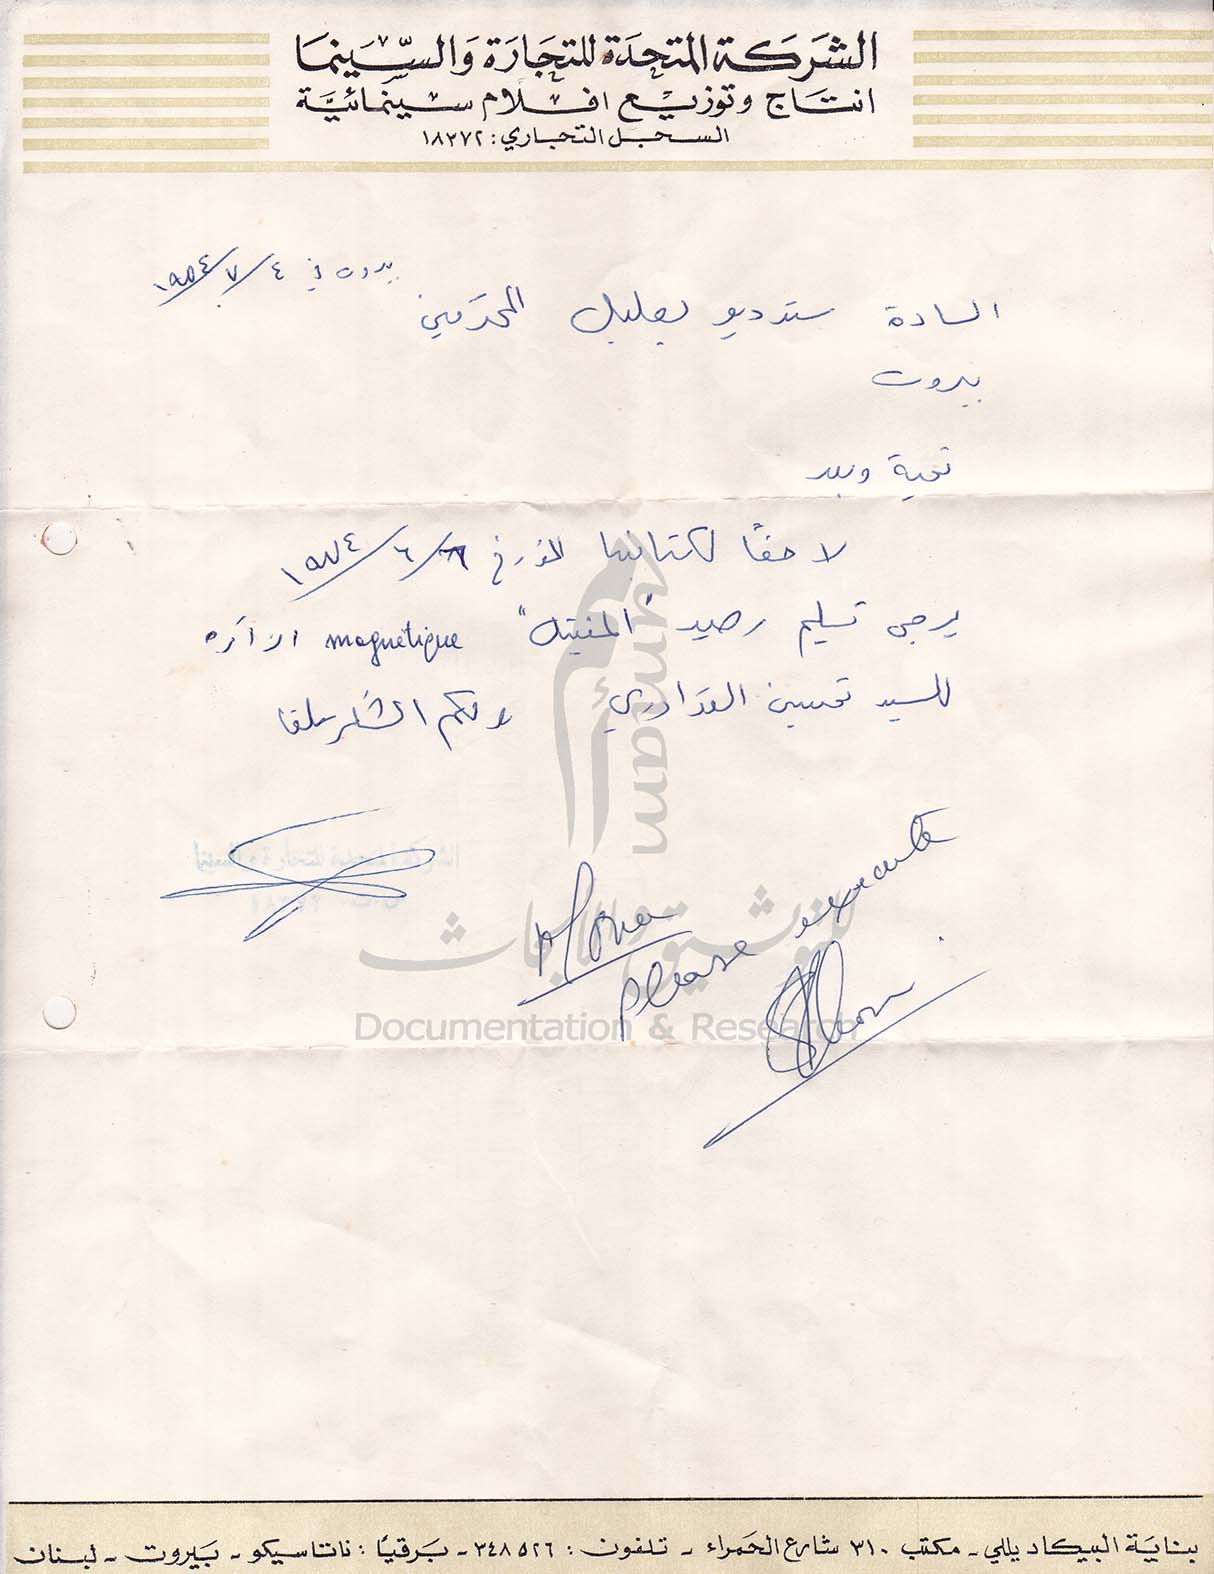 الشركة المتحدة للتجارة والسينما
انتاج وتوزيع افلام سينمائية
السجل التجاري: ١٨٣٧٢
بيروت في ٤/٧/١٩٧٤
السادة ستديو بعلبك المحترمين
بيروت
تحية وبعد
لاحقاً لكتابنا المؤرخ ٦/١٩٧٤
يرجى تسليم رصيد "المنيتيك" magnetique
للسيد تحسين القوادري ولكم الشكر سلفا
please execute
Umam
للتوثيق والأبحاث
Documentation & Research
بناية البيكاديللي - مكتب ٣١٠ شارع الحمراء - تلفون: ٣٤٨٥٢٦ - برقياً: ناتاسيكو - بيروت - لبنان